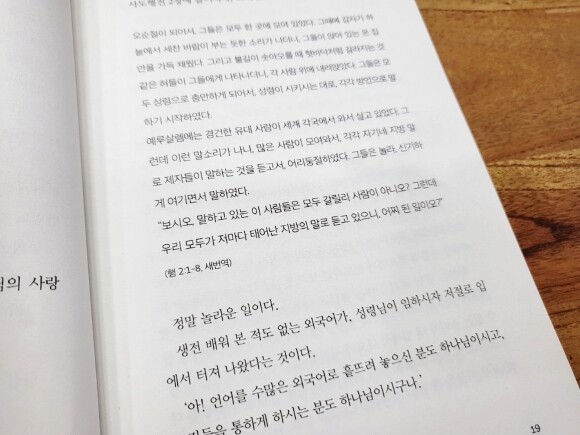 사도행전 2장에
오순절이 되어서, 그들은 모두 한 곳에 모여 있었다. 그때에 갑자기 하
늘에서 세찬 바람이 부는 듯한 소리가 나더니, 그들이 앉아 있는 온 집
안을 가득 채웠다. 그리고 불길이 솟아오를 때 혓바닥처럼 갈라지는 것
같은 혀들이 그들에게 나타나더니, 각 사람 위에 내려앉았다. 그들은 모
두 성령으로 충만하게 되어서, 성령이 시키시는 대로, 각각 방언으로 말
하기 시작하였다.
예루살렘에는 경건한 유대 사람이 세계 각국에서 와서 살고 있었다. 그
런데 이런 말소리가 나니, 많은 사람이 모여와서, 각각 자기네 지방 말
로 제자들이 말하는 것을 듣고서, 어리둥절하였다. 그들은 놀라, 신기하
게 여기면서 말하였다.
“보시오, 말하고 있는 이 사람들은 모두 갈릴리 사람이 아니오? 그런데
우리 모두가 저마다 태어난 지방의 말로 듣고 있으니, 어찌 된 일이오?”
(행 2:1-8, 새번역)
의 사랑
정말 놀라운 일이다.
생전 배워 본 적도 없는 외국어가, 성령님이 임하시자 저절로 입
에서 터져 나왔다는 것이다.
‘아! 언어를 수많은 외국어로 흩뜨려 놓으신 분도 하나님이시고,
통하게 하시는 분도 하나님이시구나.’
19